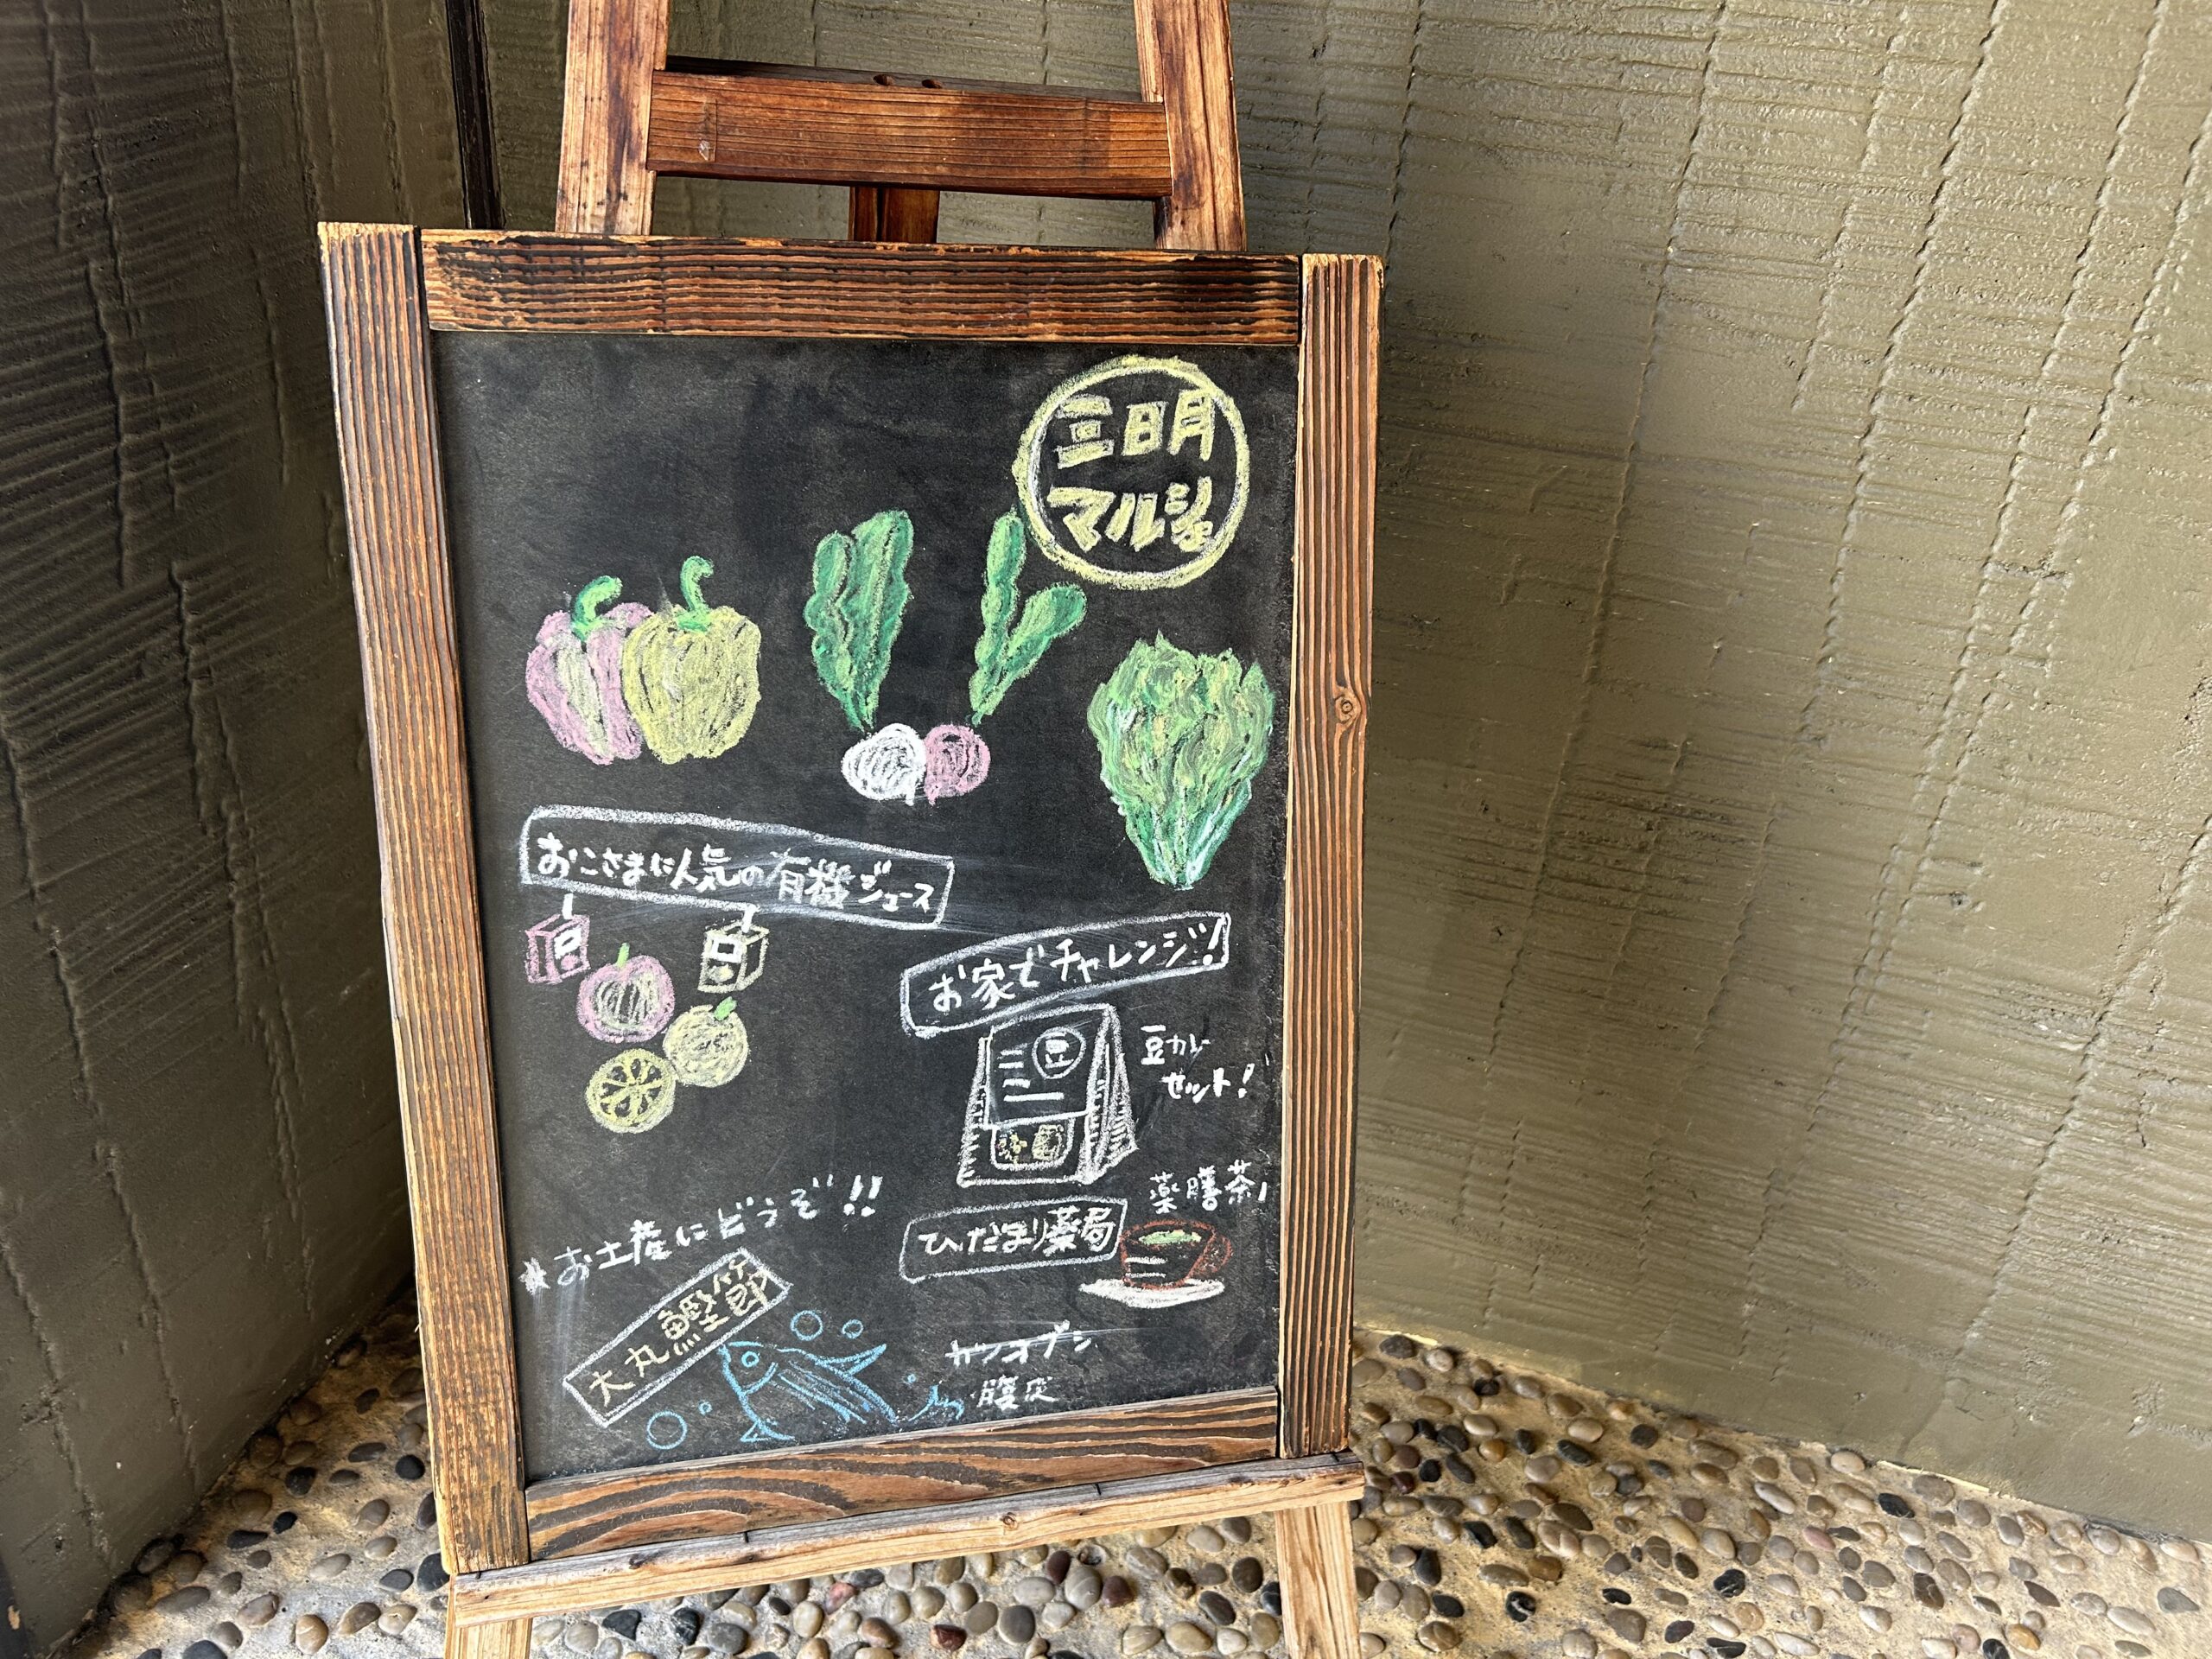 三日月
マルシェ
おこさまに人気の有機ジュース
お家でチャレンジ!!
豆
豆カレー
セット!
薬膳茶!
ひだまり薬局
*お土産にどうぞ!!
大丸鰹節
カツオブシ